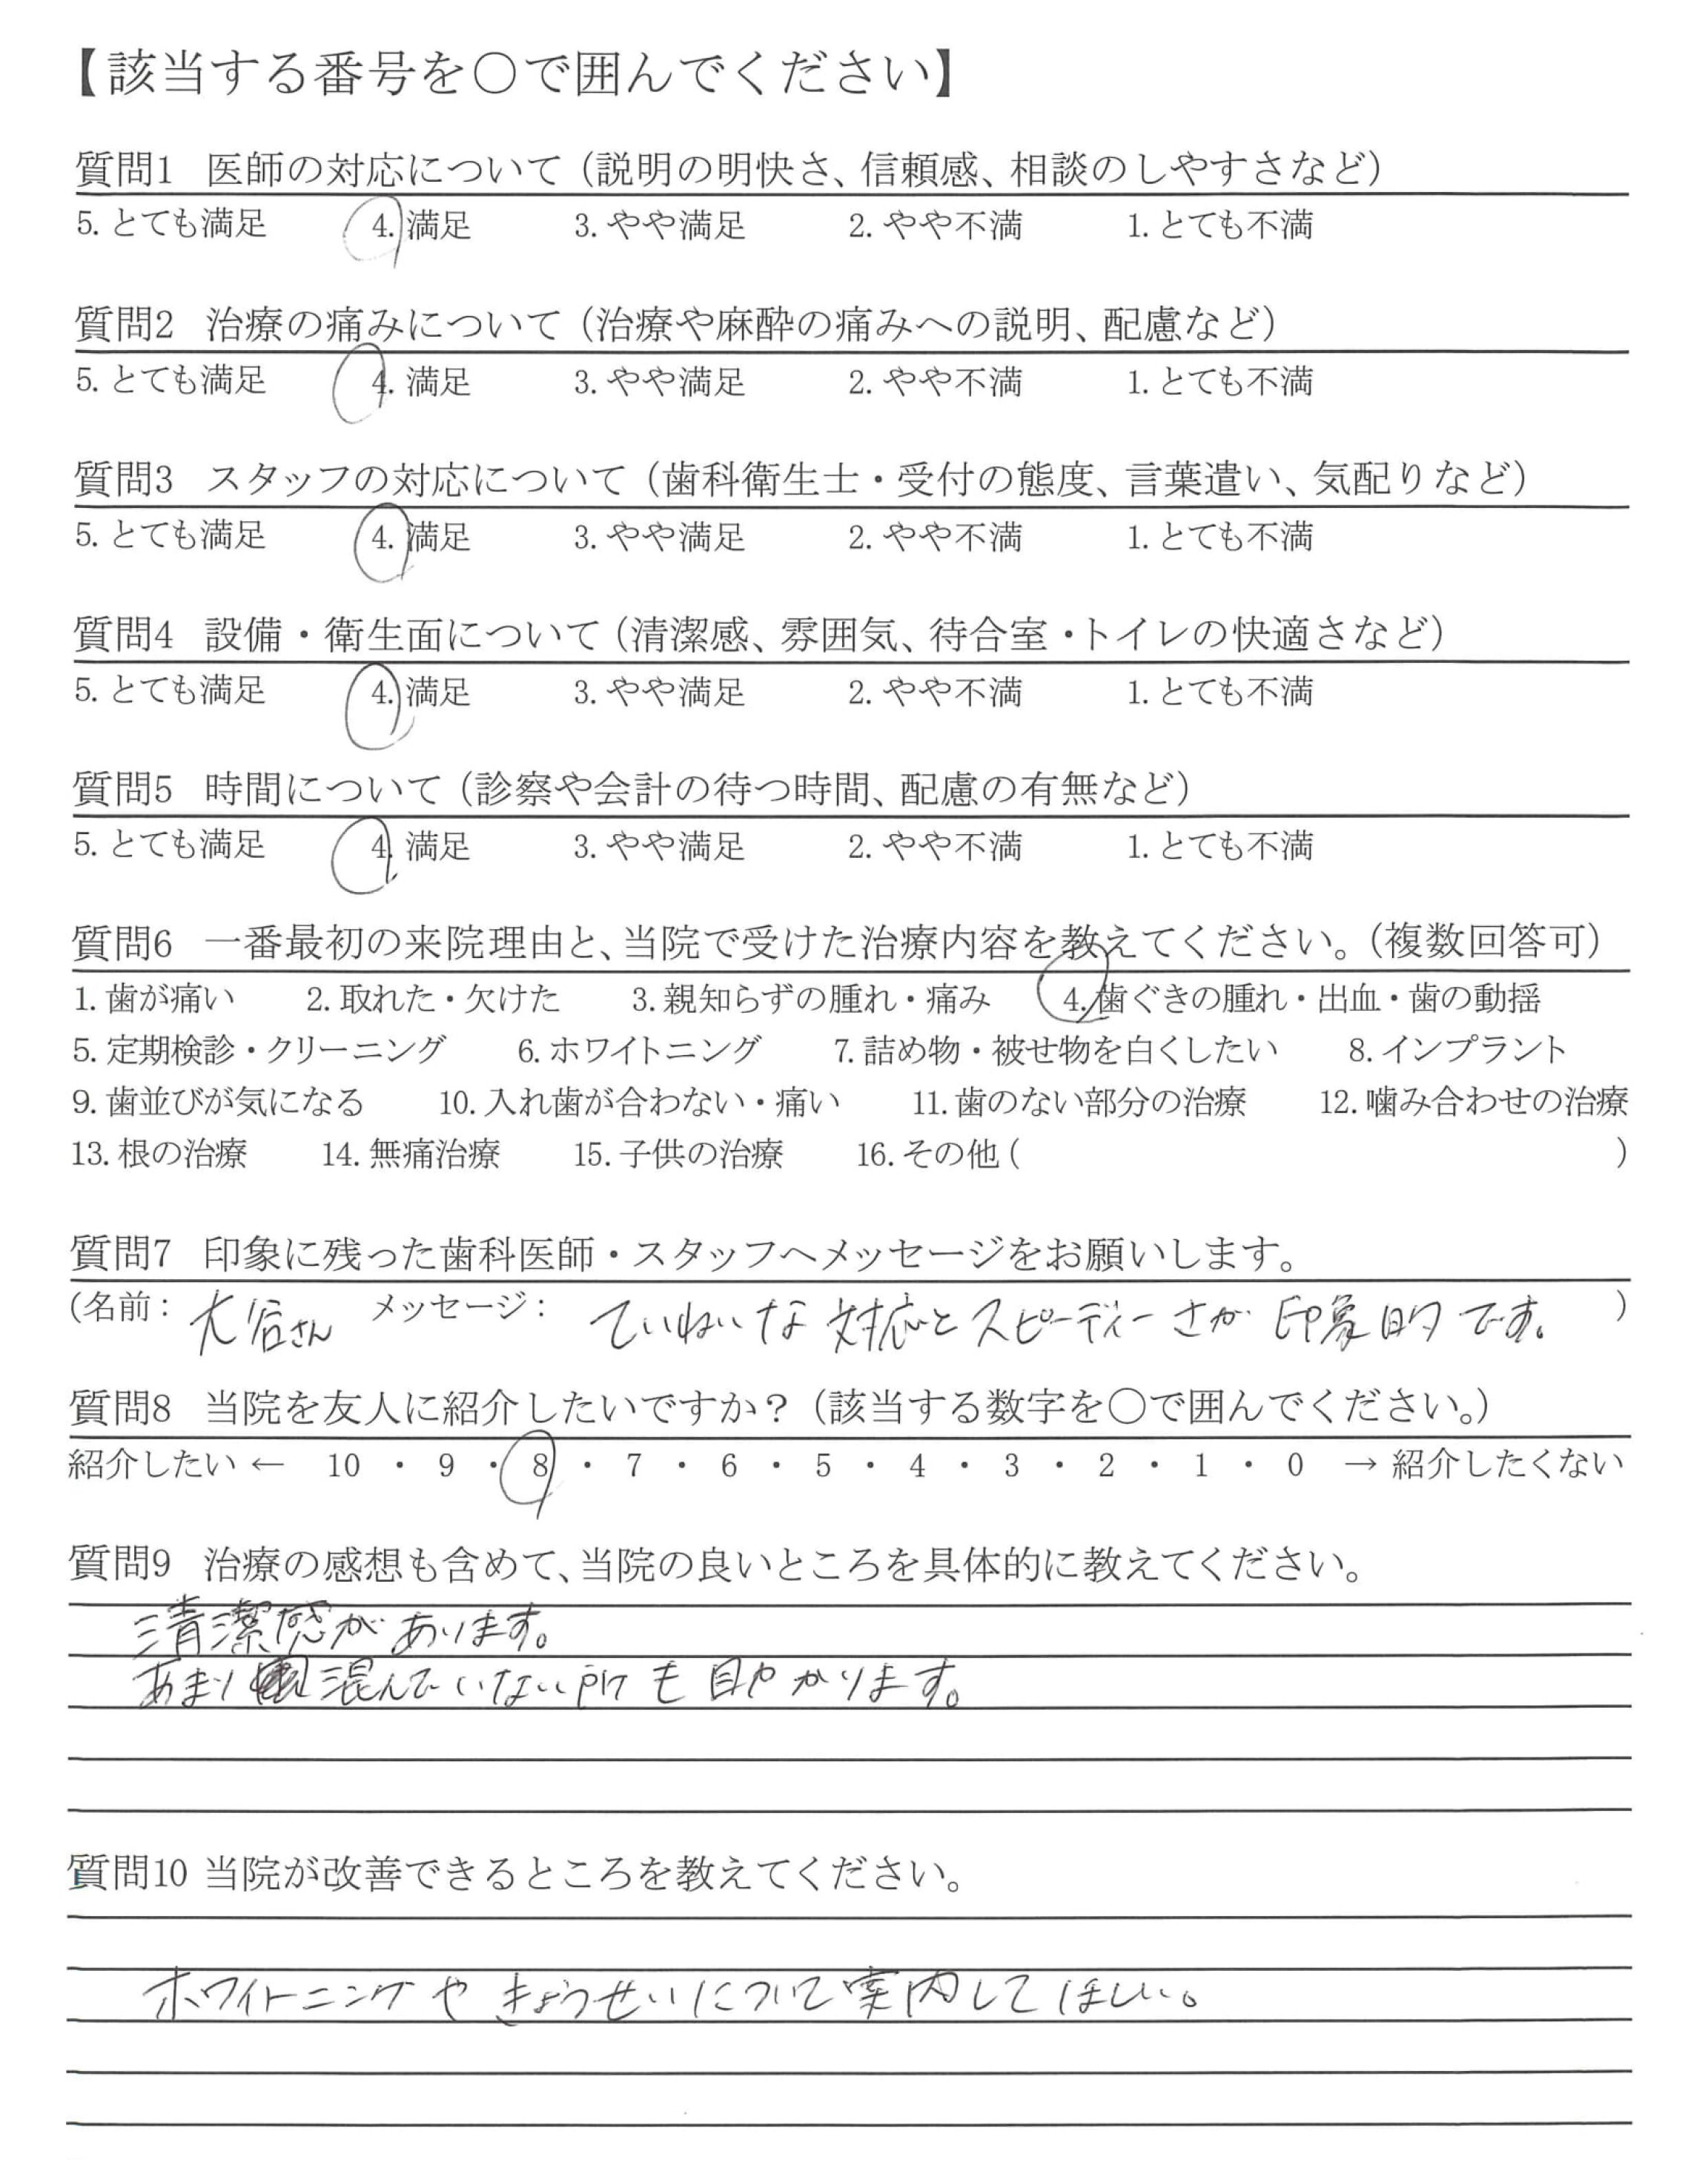 【該当する番号を〇で囲んでください】
質問1 医師の対応について（説明の明快さ、信頼感、相談のしやすさなど）
5. とても満足 4. 満足 3. やや満足 2. やや不満 1. とても不満
質問2 治療の痛みについて（治療や麻酔の痛みへの説明、配慮など）
5. とても満足 4. 満足 3. やや満足 2. やや不満 1. とても不満
質問3 スタッフの対応について（歯科衛生士・受付の態度、言葉遣い、気配りなど）
5. とても満足 4. 満足 3. やや満足 2. やや不満 1. とても不満
質問4 設備・衛生面について（清潔感、雰囲気、待合室・トイレの快適さなど）
5. とても満足 4. 満足 3. やや満足 2. やや不満 1. とても不満
質問5 時間について（診察や会計の待つ時間、配慮の有無など）
5. とても満足 4. 満足 3. やや満足 2. やや不満 1. とても不満
質問6 一番最初の来院理由と、当院で受けた治療内容を教えてください。（複数回答可）
1. 歯が痛い 2. 取れた・欠けた 3. 親知らずの腫れ・痛み 4. 歯ぐきの腫れ・出血・歯の動揺
5. 定期検診・クリーニング 6. ホワイトニング 7. 詰め物・被せ物を白くしたい 8. インプラント
9. 歯並びが気になる 10. 入れ歯が合わない・痛い 11. 歯のない部分の治療 12. 噛み合わせの治療
13. 根の治療 14. 無痛治療 15. 子供の治療 16. その他 ( )
質問7 印象に残った歯科医師・スタッフへメッセージをお願いします。
(名前： 大谷さん メッセージ： ていねいな対応とスピーディーさが印象的です。 )
質問8 当院を友人に紹介したいですか？（該当する数字を〇で囲んでください。）
紹介したい ← 10 ・ 9 ・ 8 ・ 7 ・ 6 ・ 5 ・ 4 ・ 3 ・ 2 ・ 1 ・ 0 → 紹介したくない
質問9 治療の感想も含めて、当院の良いところを具体的に教えてください。
清潔感があります。
あまり混んでいない所も助かります。
質問10 当院が改善できるところを教えてください。
ホワイトニングやきょうせいについて案内してほしい。